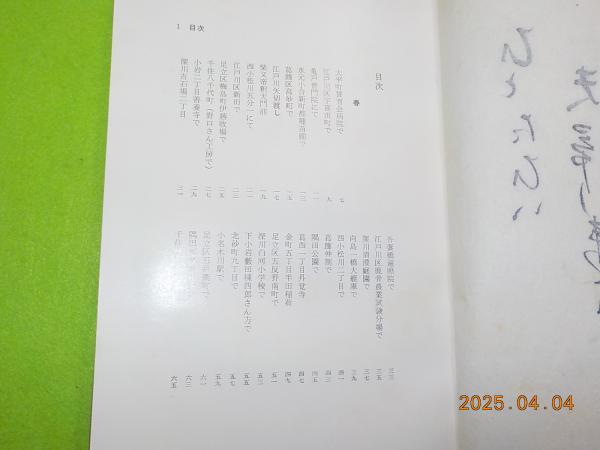 1 目次
目次
春
太平町賛育会病院で 七
江戸川区宇喜田町で 九
亀戸普門院にて 一一
水元小合新町都種苗園で 一三
葛飾区高砂町で 一五
江戸川矢切渡し 一七
柴又帝釈天門前 一九
西小松川五分一にて 二一
江戸川区新田で 二三
足立区梅島町伊勝牧場で 二五
千住八千代町(野口さん工房で) 二七
小岩二丁目善養寺で 二九
深川古石場二丁目 三一
吾妻橋遍照院で 三三
江戸川区鹿骨農業試験分場で 三五
深川清澄庭園で 三七
向島一橋大艇庫で 三九
西小松川二丁目で 四一
葛飾仲割で 四三
隅田公園で 四五
葛西一丁目昇覚寺 四七
金町五丁目半田稲荷 四九
足立区五反野南町で 五一
深川白河小学校で 五三
下小岩藪田棟四郎さん方で 五五
北砂町九丁目で 五七
小名木川駅で 五九
足立区 六一
隅田 六三
千住 六五
ひたひ
2025.04.04